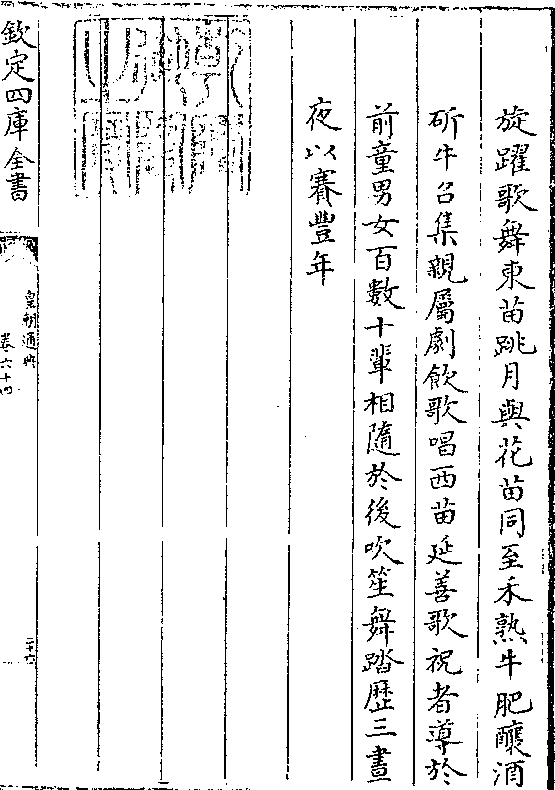 旋躍歌舞東苗跳月與花苗同至禾熟牛肥釀酒
斫牛召集親屬劇飲歌唱西苗延善歌祝者導於
前童男女百數十輩相隨於後吹笙舞踏歷三晝
夜以賽豐年
欽定四庫全書
皇朝通典
卷六十四